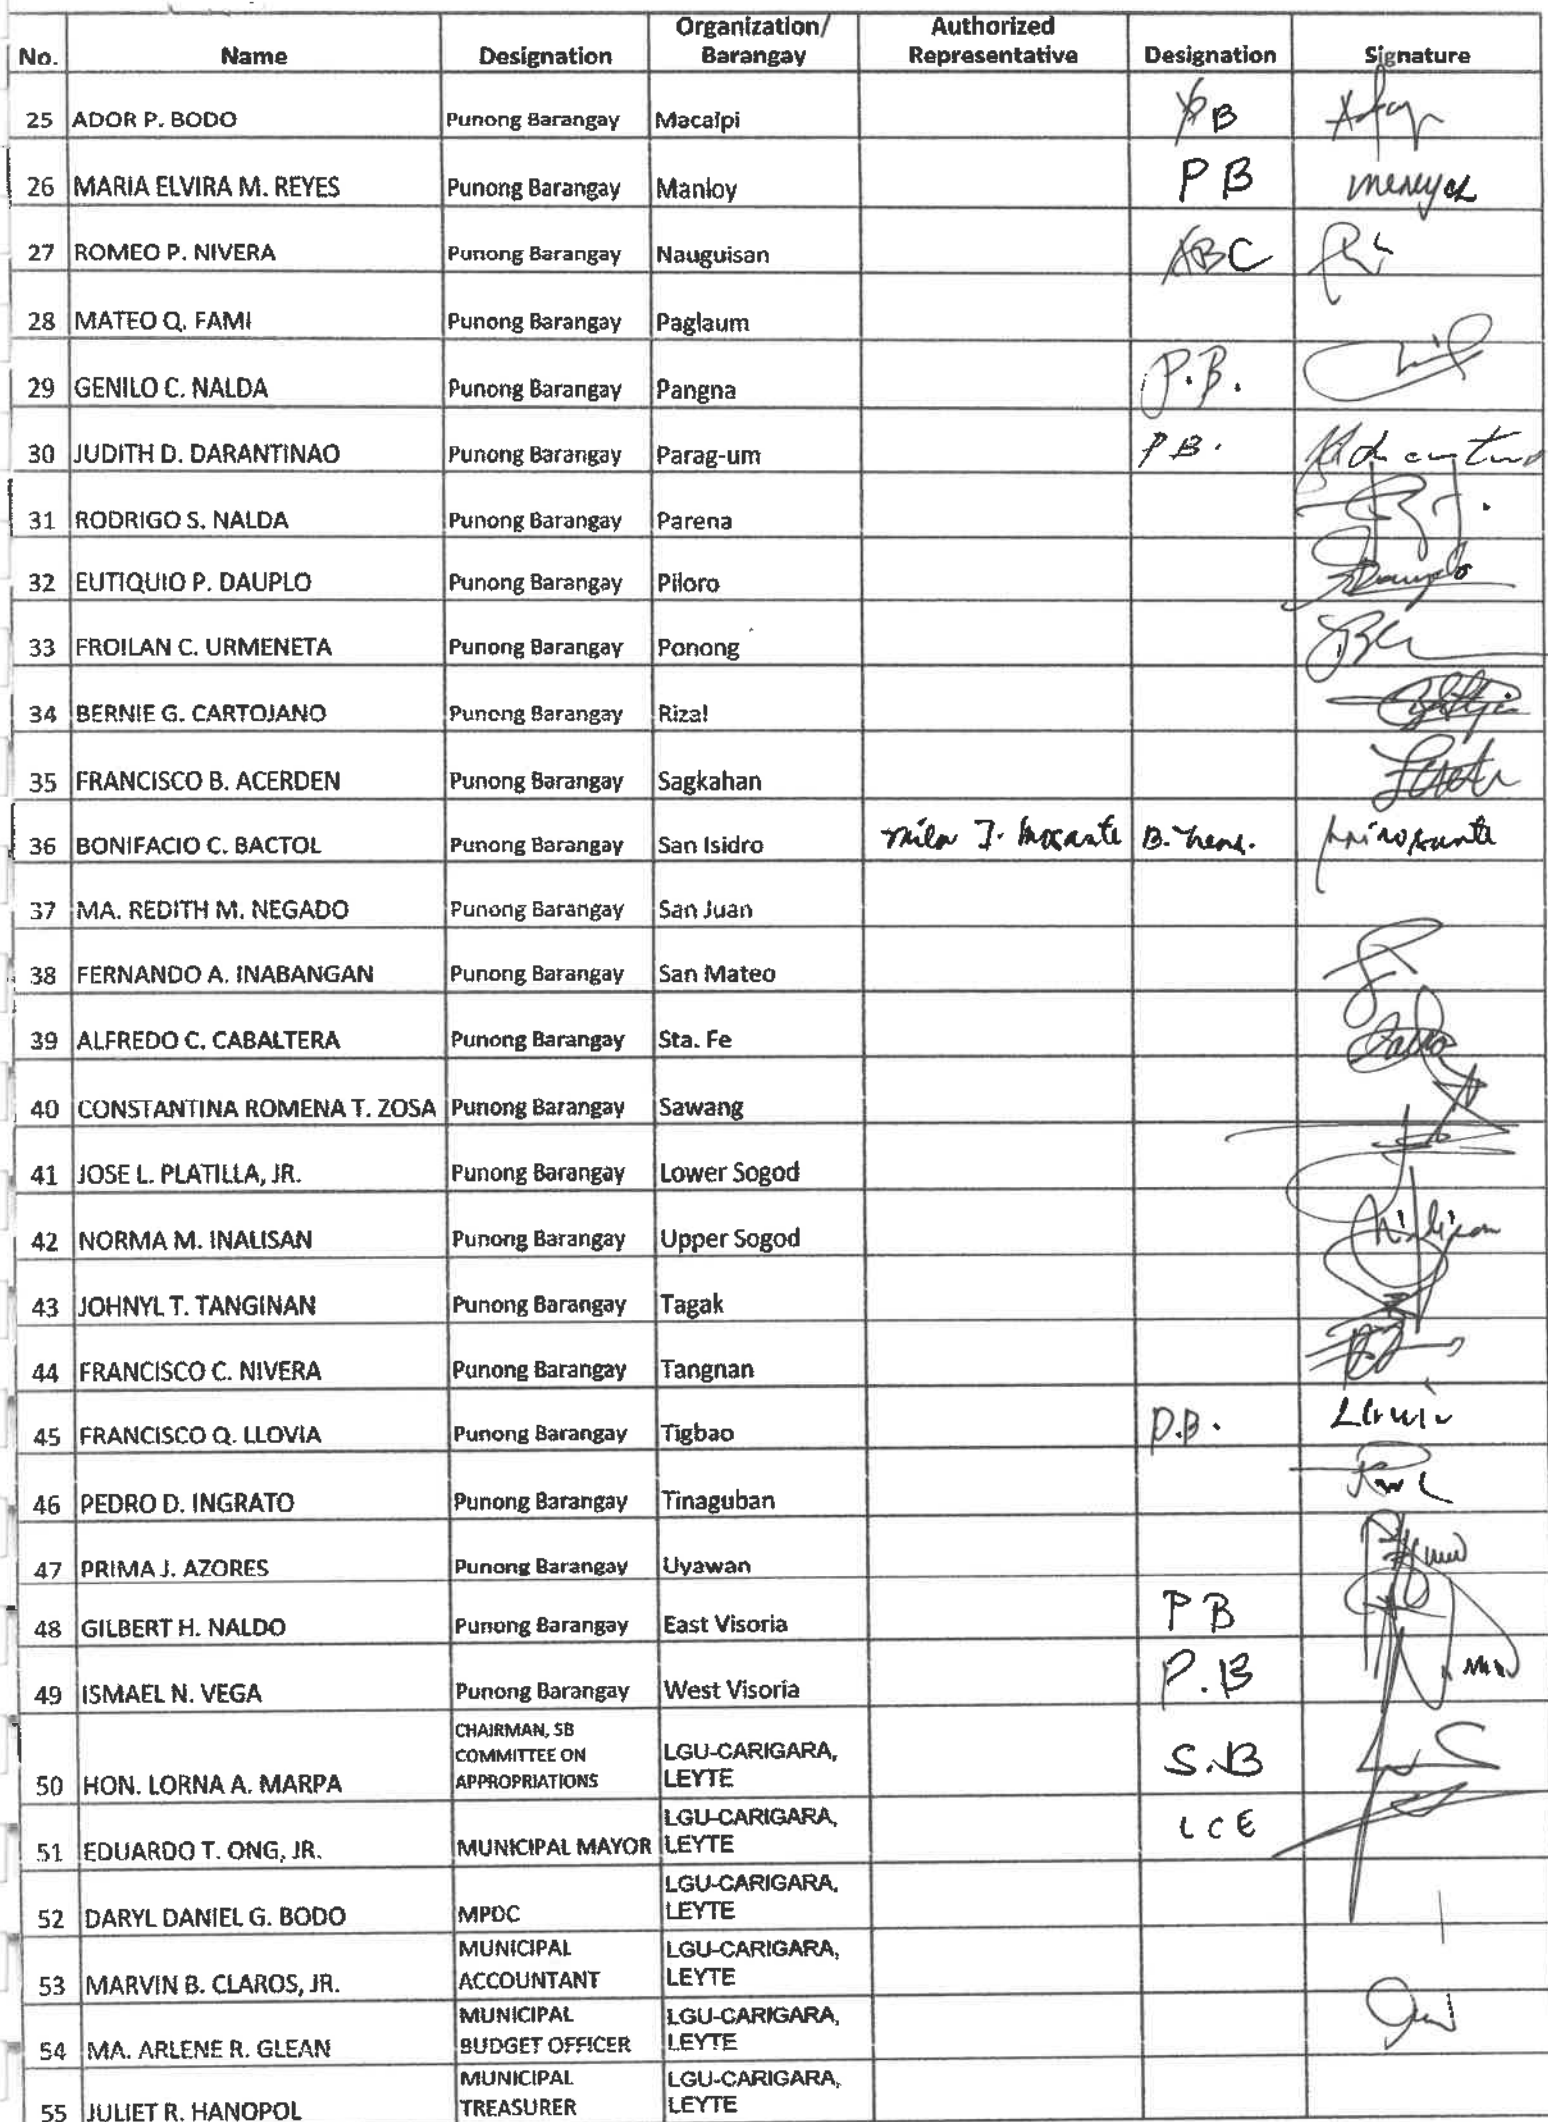 No. Name Designation Organization/ Barangay Authorized Representative Designation Signature
25 ADOR P. BODO Punong Barangay Macalpi PB
26 MARIA ELVIRA M. REYES Punong Barangay Manloy P B
27 ROMEO P. NIVERA Punong Barangay Nauguisan ABC
28 MATEO Q. FAMI Punong Barangay Paglaum
29 GENILO C. NALDA Punong Barangay Pangna P.B.
30 JUDITH D. DARANTINAO Punong Barangay Parag-um P.B.
31 RODRIGO S. NALDA Punong Barangay Parena
32 EUTIQUIO P. DAUPLO Punong Barangay Piloro
33 FROILAN C. URMENETA Punong Barangay Ponong
34 BERNIE G. CARTOJANO Punong Barangay Rizal
35 FRANCISCO B. ACERDEN Punong Barangay Sagkahan
36 BONIFACIO C. BACTOL Punong Barangay San Isidro
37 MA. REDITH M. NEGADO Punong Barangay San Juan
38 FERNANDO A. INABANGAN Punong Barangay San Mateo
39 ALFREDO C. CABALTERA Punong Barangay Sta. Fe
40 CONSTANTINA ROMENA T. ZOSA Punong Barangay Sawang
41 JOSE L. PLATILLA, JR. Punong Barangay Lower Sogod
42 NORMA M. INALISAN Punong Barangay Upper Sogod
43 JOHNYL T. TANGINAN Punong Barangay Tagak
44 FRANCISCO C. NIVERA Punong Barangay Tangnan
45 FRANCISCO Q. LLOVIA Punong Barangay Tigbao P.B.
46 PEDRO D. INGRATO Punong Barangay Tinaguban
47 PRIMA J. AZORES Punong Barangay Uyawan
48 GILBERT H. NALDO Punong Barangay East Visoria P B
49 ISMAEL N. VEGA Punong Barangay West Visoria P.B
50 HON. LORNA A. MARPA CHAIRMAN, SB COMMITTEE ON APPROPRIATIONS LGU-CARIGARA, LEYTE S.B
51 EDUARDO T. ONG, JR. MUNICIPAL MAYOR LGU-CARIGARA, LEYTE LCE
52 DARYL DANIEL G. BODO MPDC LGU-CARIGARA, LEYTE
53 MARVIN B. CLAROS, JR. MUNICIPAL ACCOUNTANT LGU-CARIGARA, LEYTE
54 MA. ARLENE R. GLEAN MUNICIPAL BUDGET OFFICER LGU-CARIGARA, LEYTE
55 JULIET R. HANOPOL MUNICIPAL TREASURER LGU-CARIGARA, LEYTE